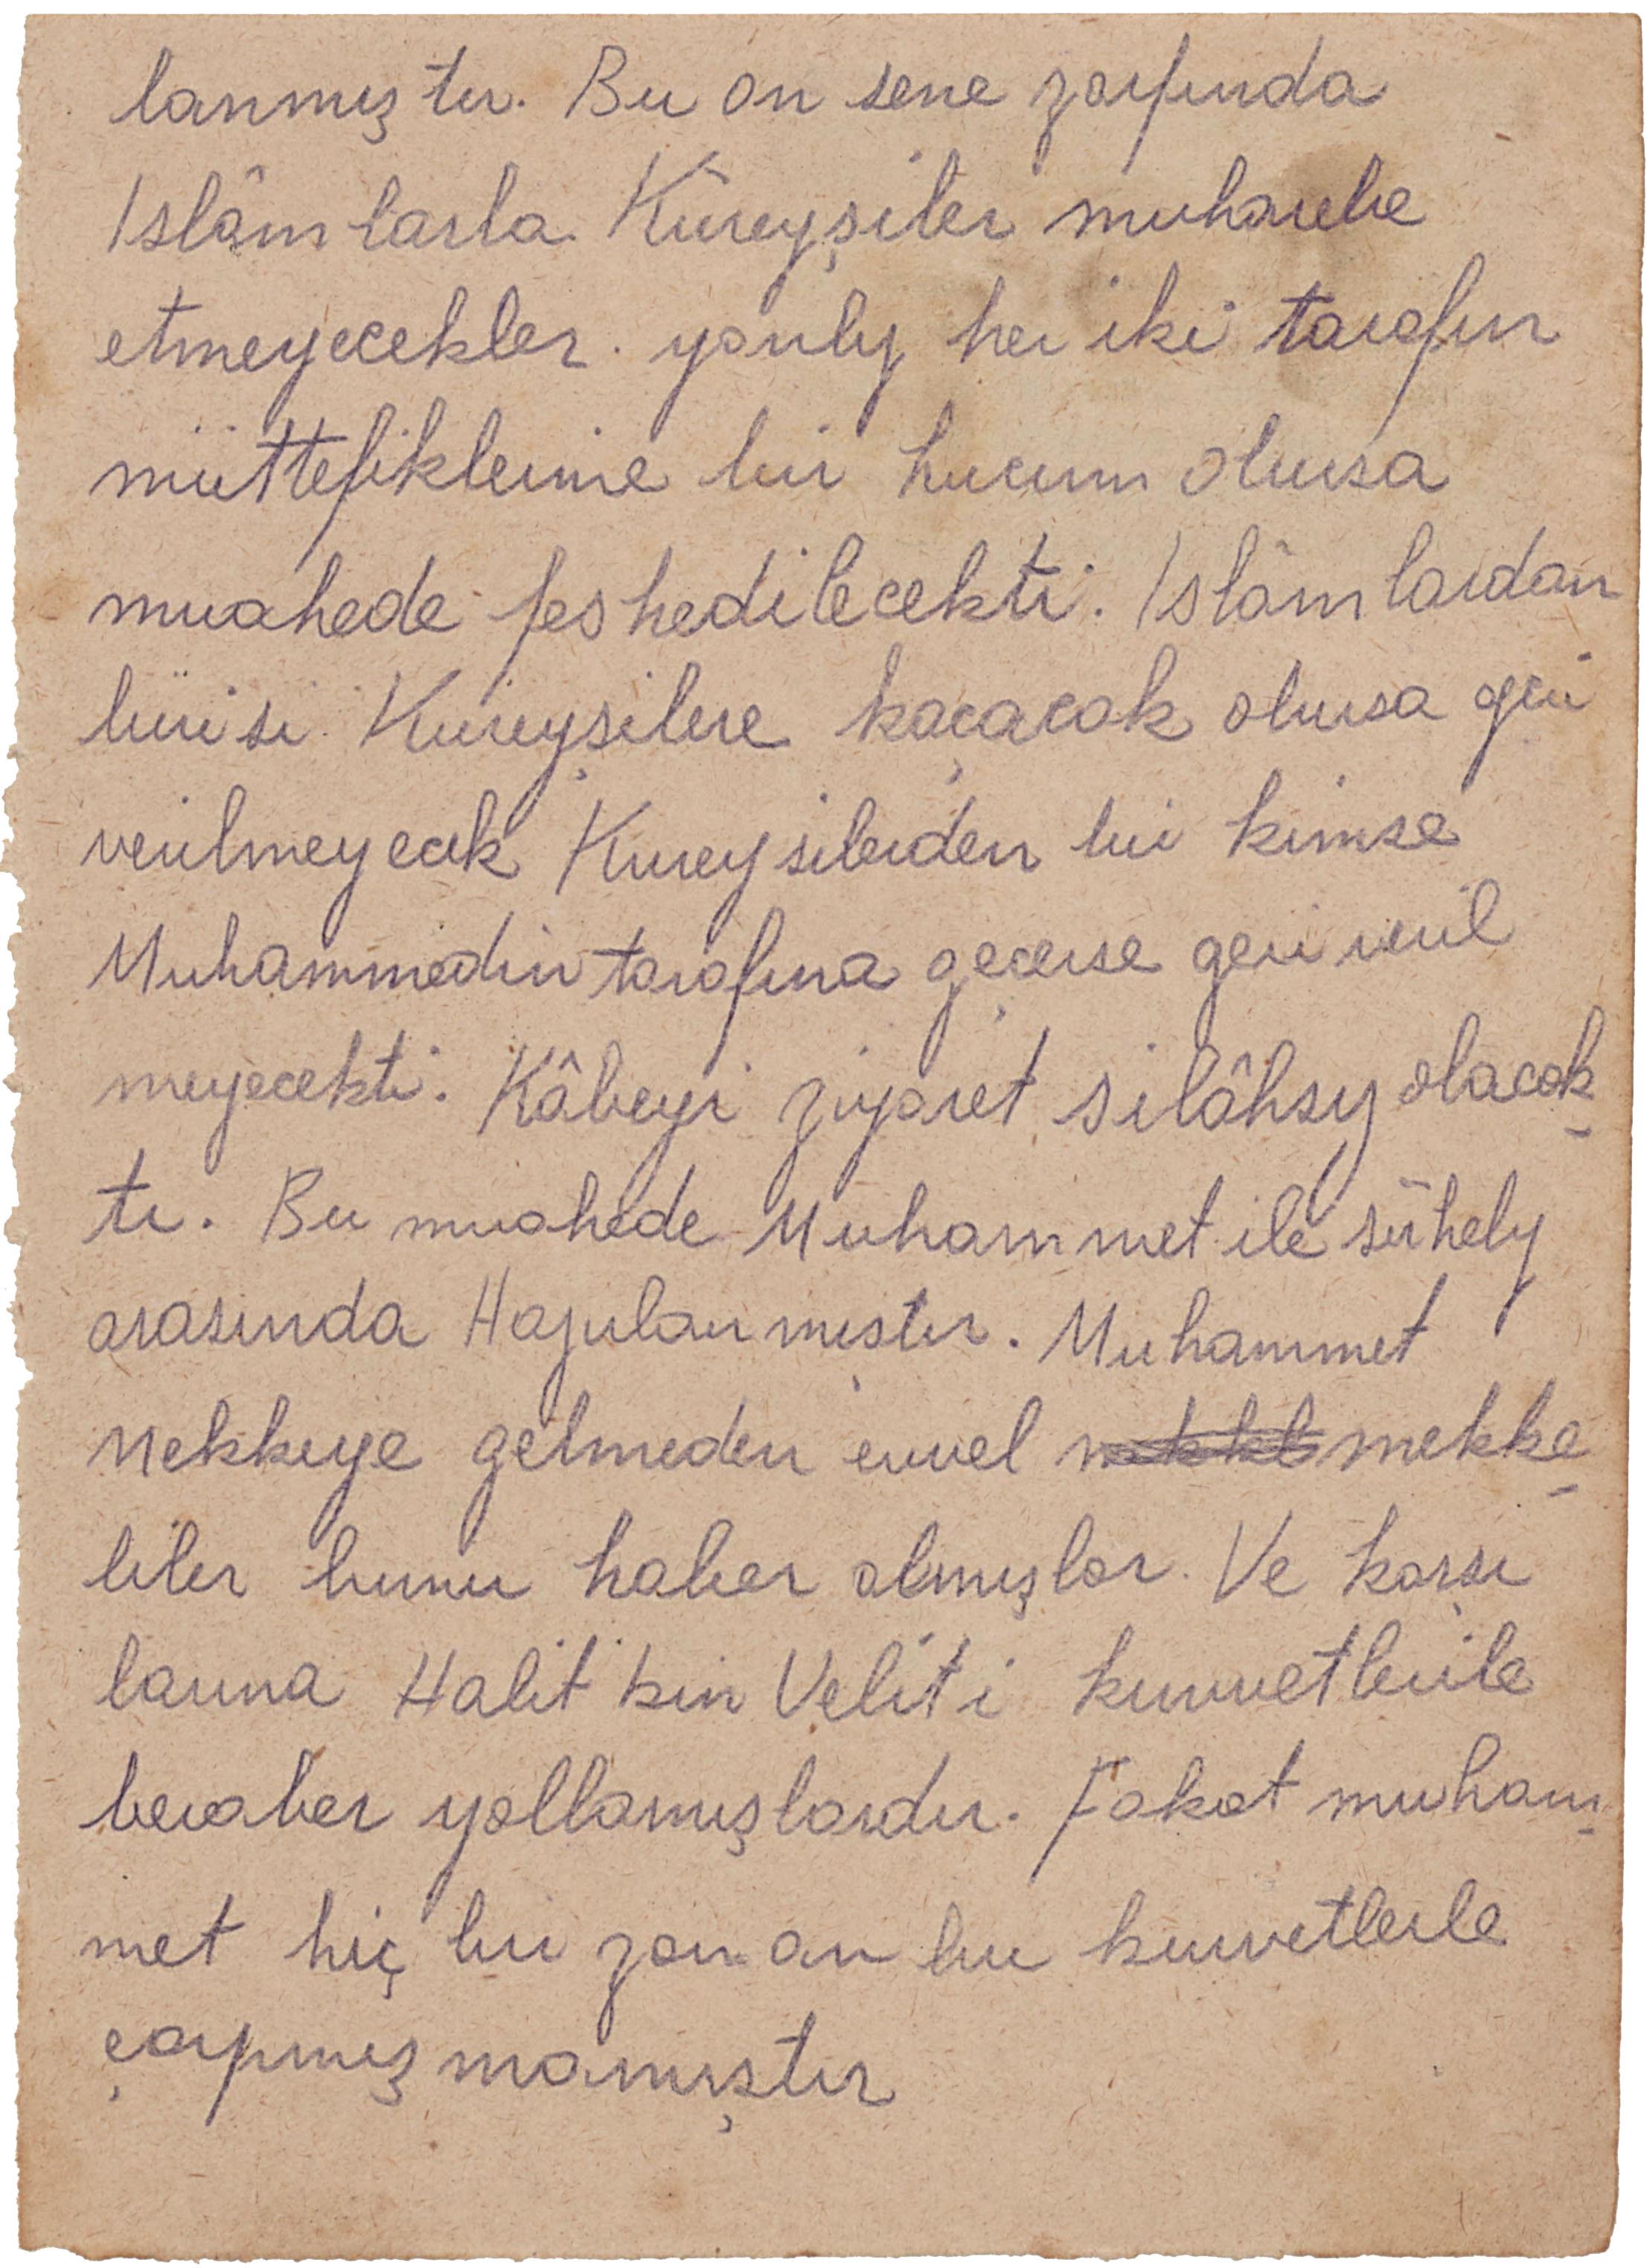 lanmıştır. Bu on sene zarfında
İslâmlarla Küreyşiler muharebe
etmeyecekler. yanlız her iki tarafın
müttefiklerine bir hucum olursa
muahede feshedilecekti. İslâmlardan
birisi Kureyşilere kaçacak olursa geri
verilmeyecek Kureysilerden bir kimse
Muhammedin tarafına geçerse geri veril
meyecekti. Kâbeyi ziyaret silâhsız olacak-
tı. Bu muahede Muhammet ile sühely
arasında Hazırlanmıştır. Muhammet
Mekkeye gelmeden evvel mekke-
liler bunu haber almışlar. Ve karşı
larına Halit bin Velit i kuvvetlerile
beraber yollamışlardır. Fakat muham-
met hiç bir zaman bu kuvvetlerle
çarpmışmamıştır